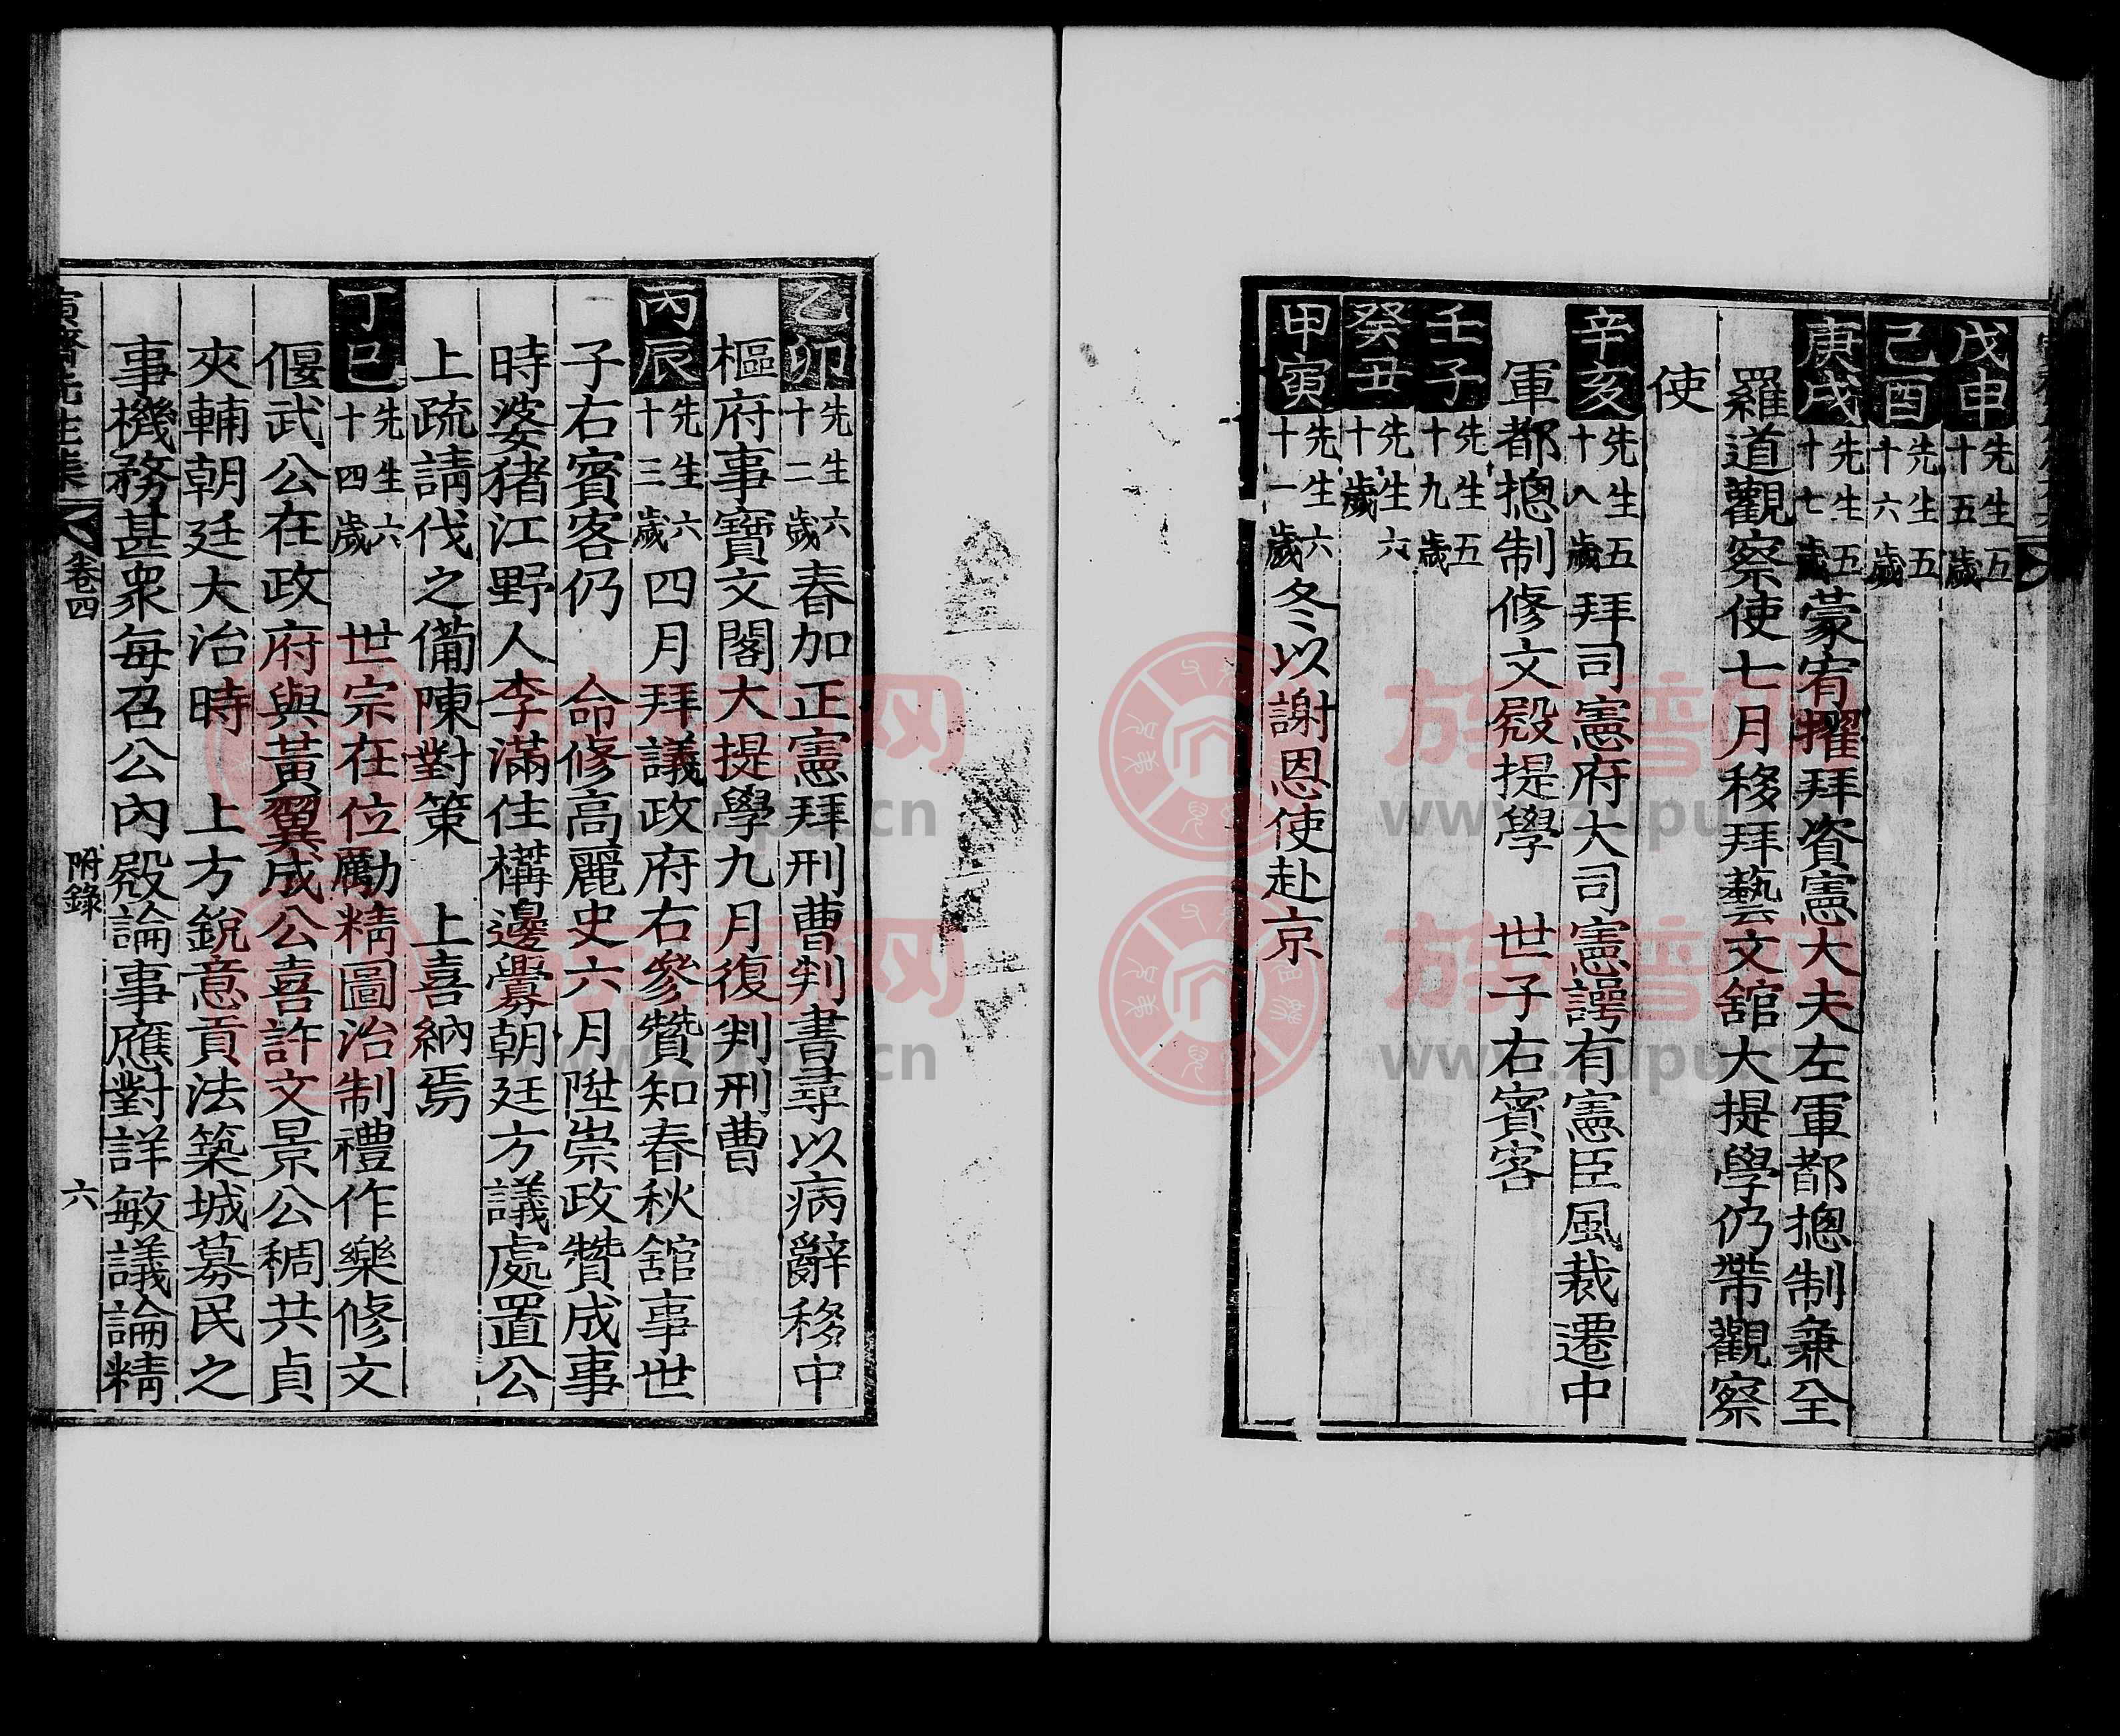 戊申先生五十五歲
己酉先生五十六歲
庚戌先生五十七歲蒙宥擢拜資憲大夫左軍都摠制兼全
羅道觀察使七月移拜藝文舘大提學仍帶觀察
使
辛亥先生五十八歲拜司憲府大司憲諤有憲臣風裁遷中
軍都摠制修文殿提學 世子右賓客
壬子先生五十九歲
癸丑先生六十歲
甲寅先生六十一歲冬以謝恩使赴京
乙卯先生六十二歲春加正憲拜刑曹判書尋以病辭移中
樞府事寶文閣大提學九月復判刑曹
丙辰先生六十三歲四月拜議政府右參贊知春秋舘事世
子右賓客仍 命修高麗史六月陞崇政贊成事
時婆猪江野人李滿住構邊釁朝廷方議處置公
上疏請伐之備陳對策 上喜納焉
丁巳先生六十四歲 世宗在位勵精圖治制禮作樂修文
偃武公在政府與黃翼成公喜許文景公稠共貞
夾輔朝廷大治時 上方銳意貢法築城募民之
事機務甚衆每召公內殿論事應對詳敏議論精
先生集 卷四 附錄 六
族譜网
www.zupu.cn
族譜网
www.zupu.cn
族譜网
www.zupu.cn
族譜网
www.zupu.cn